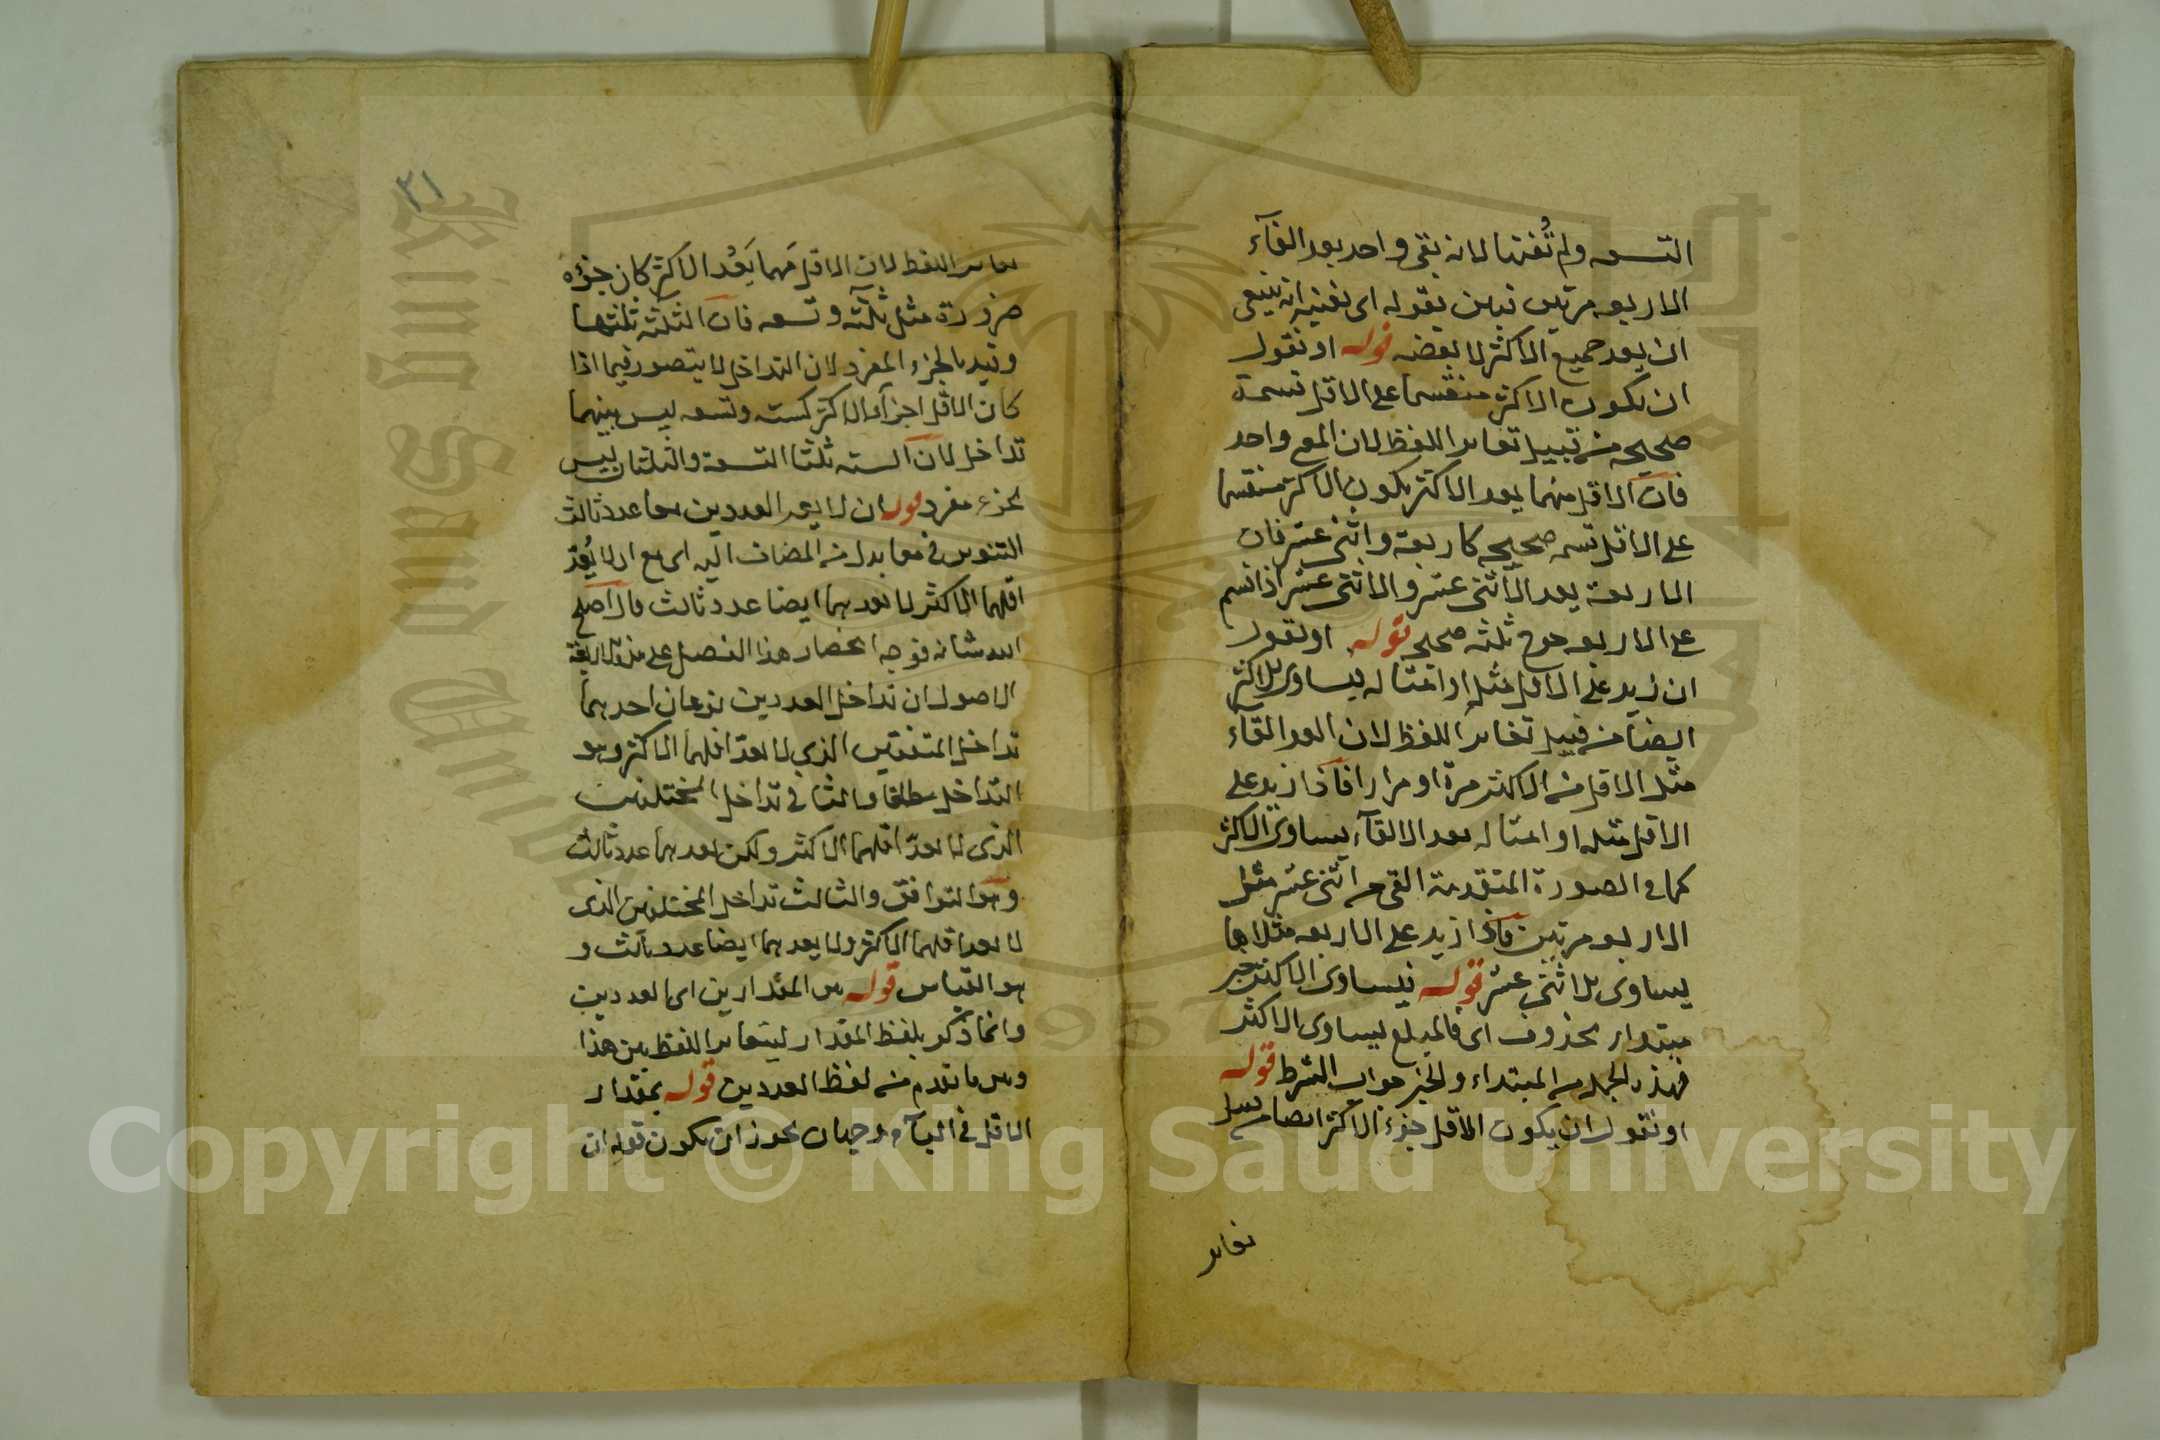 التسعه ولم تُفنها لانه بقي واحد بعد القآء
الاربعه مرتين تبين بقوله اى تفنيه انه ينبغى
ان يعد جميع الاكثر لا بعضه قوله او نقول
ان يكون الاكثر منقسما على الاقل قسمة
صحيحه من قبيل تغاير اللفظ لان المع واحد
فان الاقل مهما يعد الاكثر يكون الاكثر منقسما
على الاقل قسمه صحيحه كاربعة واثنى عشر فان
الاربعة يعد الاثنى عشر والاثنى عشر اذا قسم
على الاربعه خرج ثلثه صحيح قوله او نقول
ان زيد على الاقل مثله او امثاله يساوى الاكثر
ايضا من قبيل تغاير اللفظ لان العد القآء
مثل الاقل من الاكثر مرة او مرارا فاذا زيد على
الاقل مثله او امثاله بعد الالقآء يساوى الاكثر
كما فى الصورة المتقدمة القى من اثنى عشر مثل
الاربعه مرتين فاذا زيد على الاربعه مثلاها
يساوى لاثنى عشر قوله فيساوى الاكثر خبر
مبتداء محذوف اى فالمبلغ يساوى الاكثر
فهذه الجمله من المبتداء والخبر جواب الشرط قوله
او نقول ان يكون الاقل جزء الاكثر ايضا من قبيل
تغاير
٢١
تغاير اللفظ لان الاقل مهما يَعُد الاكثر كان جزؤه
ضرورة مثل ثلثة وتسعه فان الثلثه ثلثها
وقيد بالجزء المفرد لان التداخل لا يتصور فيما اذا
كان الاقل اجزآء الاكثر كسته وتسعه ليس بينهما
تداخل لان السته ثلثا التسعة والثلثان ليس
بجزء مفرد قوله ان لا يعد العددين معا عدد ثالث
التنوين فى معا بدل من المضاف اليه اى مع ان لا يُعد
اقلهما الاكثر لا يعدهما ايضا عدد ثالث قال اصلح
الله شانه فوجه انحصار هذا الفصل على هذه الاربعة
الاصول ان تداخل العددين نوعان احدهما
تداخل المتفقين الذى لا يعدّ اقلهما الاكثر وهو
التداخل مطلقا والثانى تداخل المختلفين
الذى لا يعدّ اقلهما الاكثر ولكن يعدهما عدد ثالث
وهو التوافق والثالث تداخل المختلفين الذى
لا يعد اقلهما الاكثر ولا يعدهما ايضا عدد ثالث و
هو التباين قوله بين المقدارين اى العددين
وانما ذكر بلفظ المقدار ليتغاير اللفظ بين هذا
وبين ما تقدم من لفظ العددين قوله بمقدار
الاقل فى البآء وجهان يجوز ان يكون قوله ان